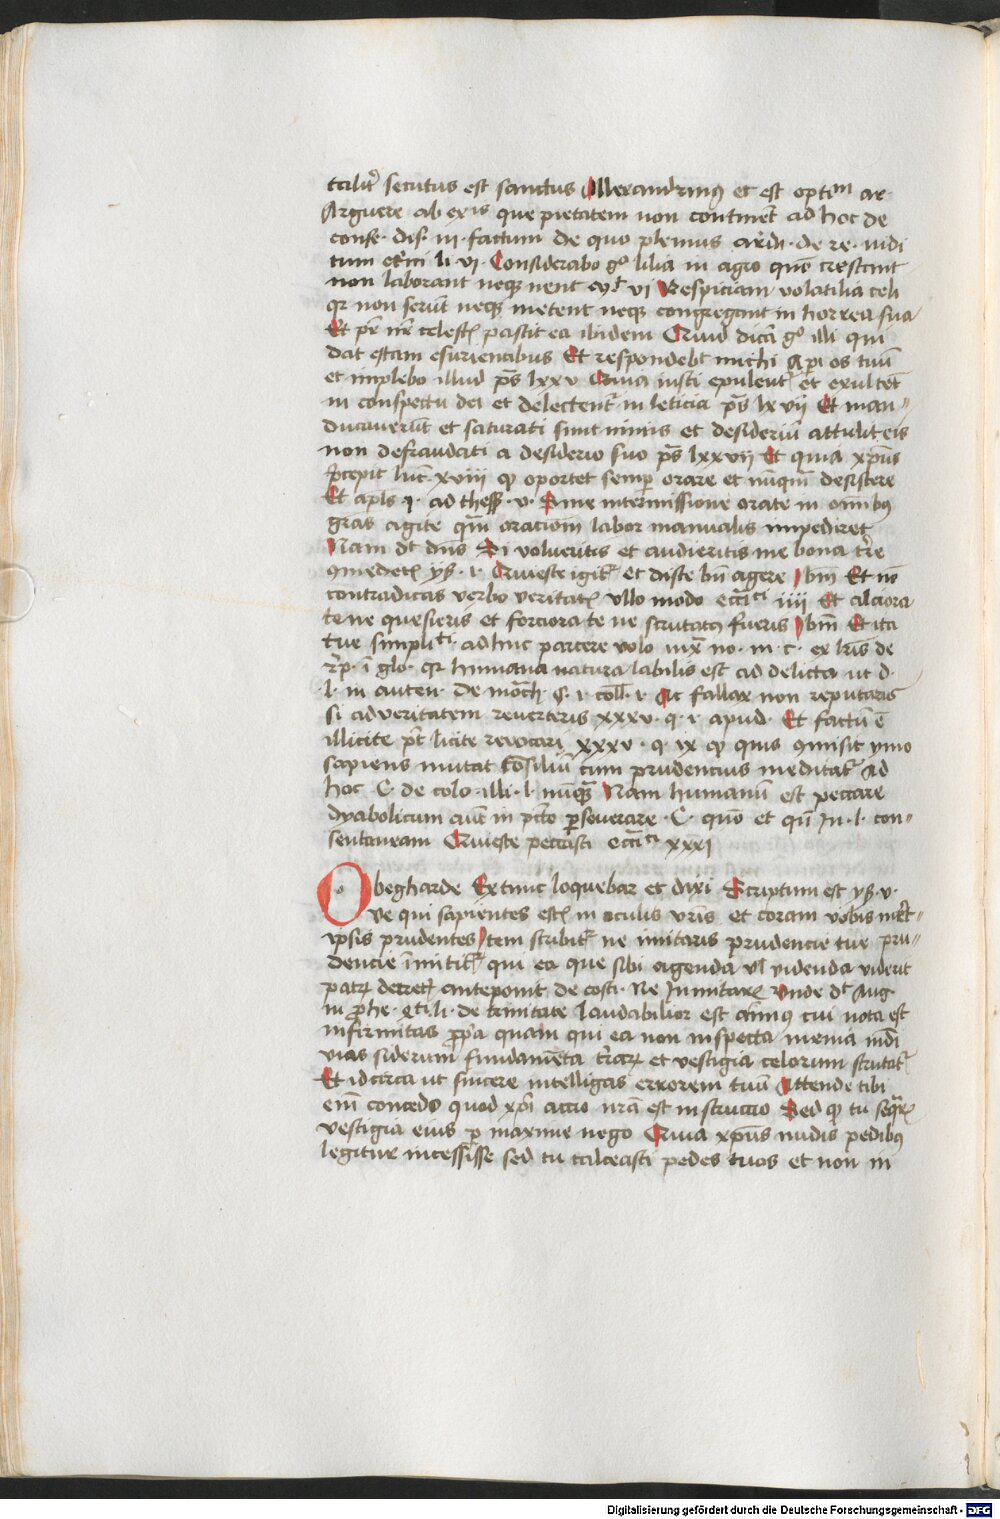 talit᷑ secutus est sanctus Allexandrinꝰ et est optīm ar
Arguere ab ex is que pietatem non continet ad hoc de
conse. dis. iii. factum de quo plenius
tum li vi. Considerabo gͦ lilia in agro quō crescunt
non laborant neqꝫ nent vi Respiciam volatilia celi
qꝛ non serūt neqꝫ metent neqꝫ congregant in horrea sua
Et pr̄ nr̄ celest pascit ea ibidem Quid dicā gͦ illi qui
dat escam esurientibus Et respondebt michi Api os tuū
et implebo illud ps̄ lxxv Quia iusti epulent᷑ et exultēt
in conspectu dei et delectent᷑ in leticia ps̄ lxvii Et man〃
ducaverūt et saturati sunt nimis et desideriū attulit eis
non defraudati a desiderio suo ps̄ lxxvii Et quia xpūs
p̄cepit luc̄. xviii qꝫ oportet semp orare et nūqm̄ desistere
Et apls 1. ad thess. v. Sine intermissione orate in omībꝰ
grās agite qm̄ orationē labor manualis impediret
Nam dt dn̄s Si volueritis et audieritis me bona tr̄e
ꝯmedet ys. i. Quieste igit᷑ et disce bn̄ agere Ibm̄ Et nō
contradicas verbo veritat ullo modo ecc̄i iiii Et alciora
te ne quesieris et forciora te ne scrutatꝰ fueris Ibm̄ Et ita
tue simpli adhuc parcere volo iux no. in. c. ex lr̄is de
ī glo. qꝛ humana natura labilis est ad delicta ut d.
.l. in auten. de moch. C. i. coll. i. Ac fallax non reputaris
si ad veritatem reverteris xxxv. q. i. apud. Et factū ē
illicite pt̄ licite revocari xxxv. q. ix qꝫ quis ꝯmisit ymo
sapiens mutat cōsiliū cum prudencius meditat᷑ Ad
hoc C de colo. illi. l. nūqꝫ Nam humanū est peccare
dyabolicum aut̄ in pctō p̱severare. C. quō et qn̄ iu. l. con〃
sentaneam Quieste peccasti ecc̄i xxxi
O begharde Extunc loquebar et dixi Scriptum est ys. v.
Ve qui sapientes est in oculis vr̄is et coram vobis met〃
ipsis prudentes Item scribit᷑ ne imitaris prudencie tue pru〃
dencie īnitit᷑ qui ea que sibi agenda ul videnda viderit
patꝝ decret anteponit de costi. Ne innitaris Unde dt Aug
in prohe. qͣrti li. de trinitate laudabilior est aīmꝰ cui nota est
infirmitas pp̄a quam qui ea non inspecta menia mūdi
vias siderum fundamēta tr̄arꝝ et vestigia celorum scrutat᷑
Et idcirca ut sincere intelligas errorem tuū Attende tibi
enī concedo quod xpi actio nr̄a est instructio Sed qꝫ tu seqr̄
vestigia eius p maxime nego Quia xpūs nudis pedibꝰ
legitur incessisse sed tu calceasti pedes tuos et non in
Digitalisierung gefördert durch die Deutsche Forschungsgemeinschaft - DFG